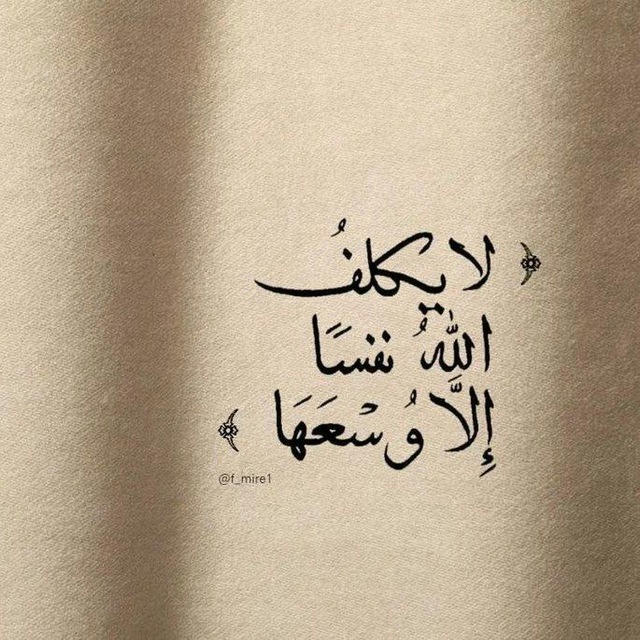 ﴿ لا يكلفُ
اللّٰهُ نفسًا
إِلَّا وُسْعَهَا ﴾
@f_mire1